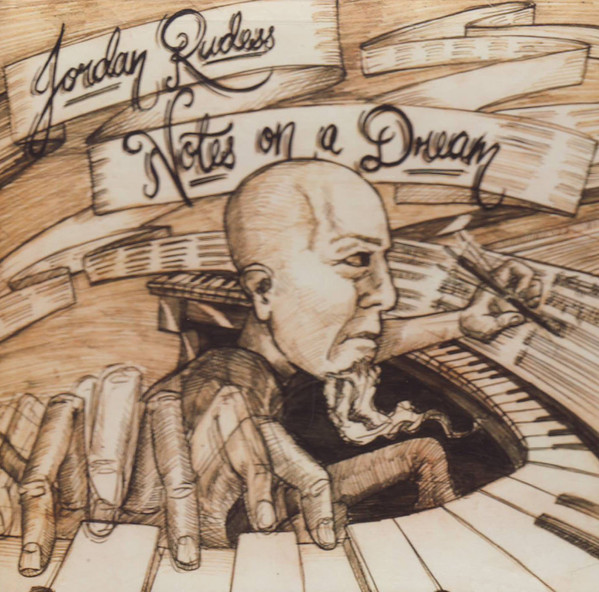 Jordan Rudess
Notes on a Dream